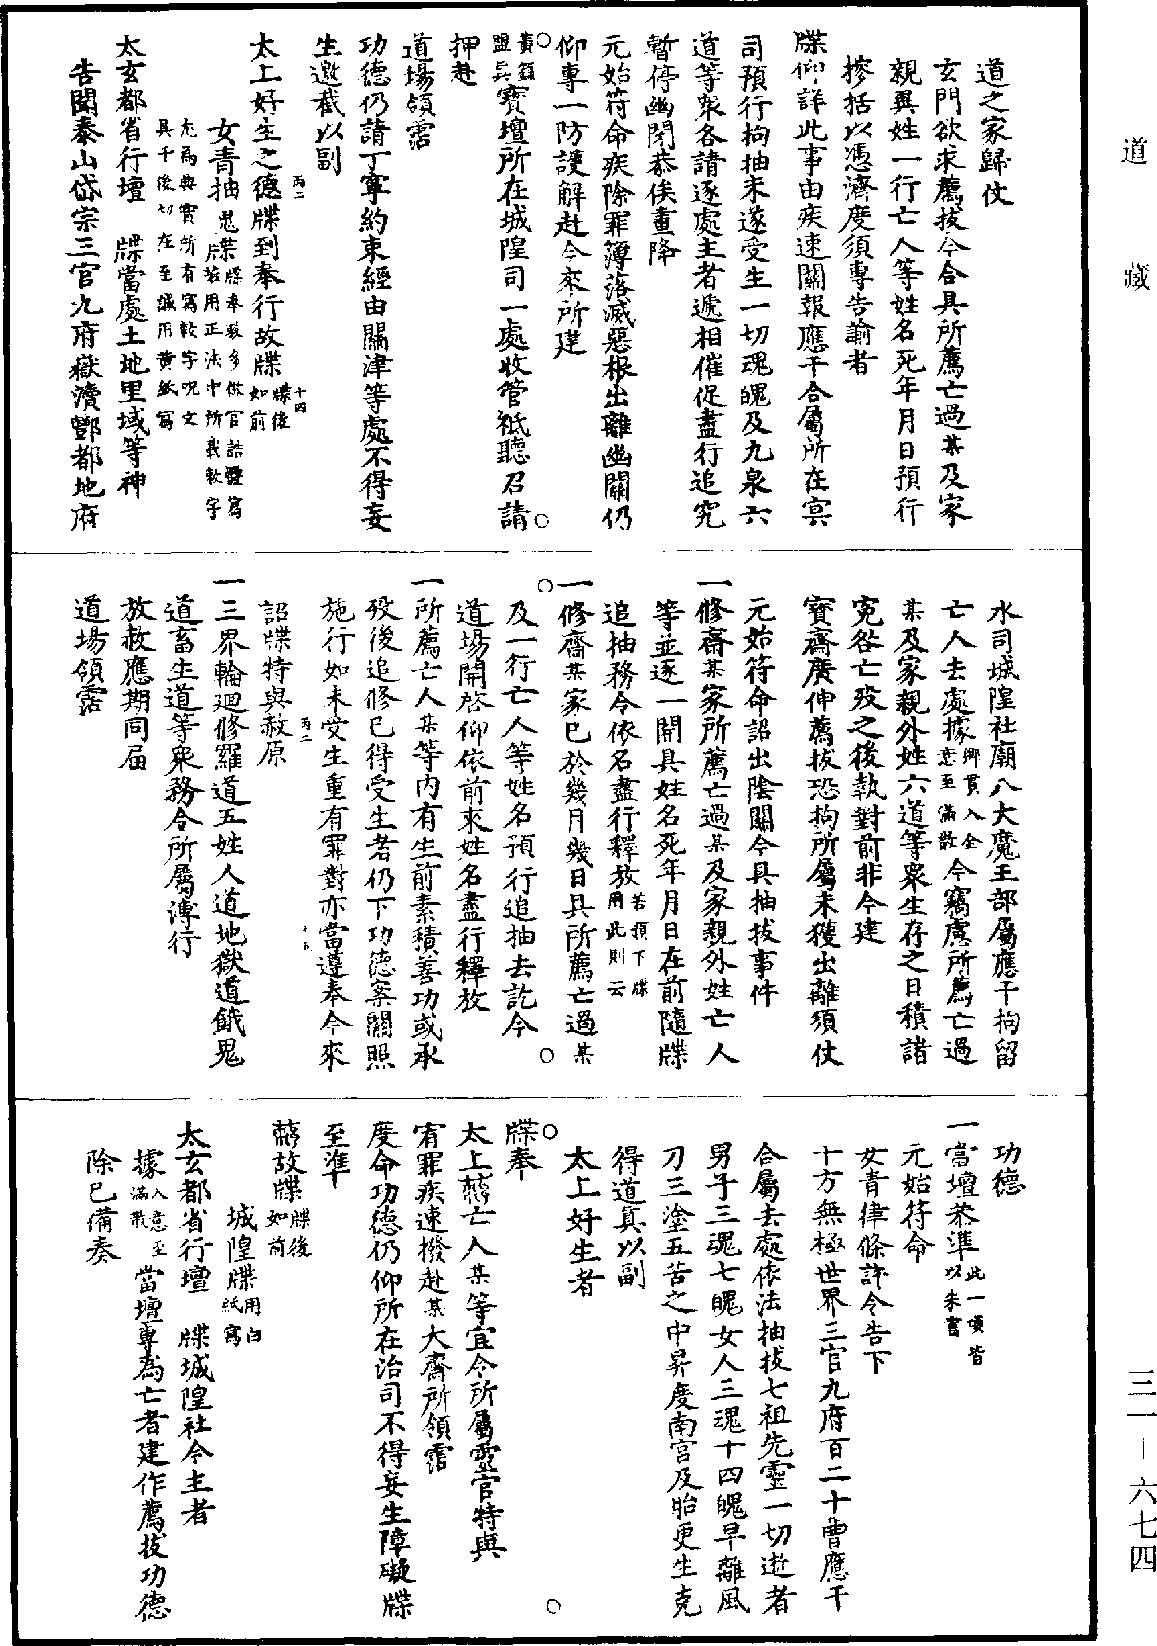 道之家歸仗
玄門欲求薦拔今合具所薦亡過某及家
親異姓一行亡人等姓名死年月日預行
摉括以憑濟度須專告諭者
牒仰詳此事由疾速關報應干合屬所在冥
司預行拘抽未遂受生一切魂魄及九泉六
道等衆各請逐處主者遞相催促盡行追究
暫停幽閉恭俟畫降
元始符命疾除罪簿落滅惡根出離幽關仍
仰專一防護解赴今來所建
黃籙盟真寶壇所在城隍司一處收管祗聽召請
押赴
道場領霑
功德仍請丁寧約束經由關津等處不得妄
生邀截以副
太上好生之德牒到奉行故牒牒後如前
丙二
十四
女青抽鬼牒牒奉敕多做官誥體寫牒若用正法中所載敕字
尤為典實所有寫敕字呪文具千後切在至誠用黃紙寫
太玄都省行壇　牒當處土地里域等神
告關泰山岱宗三官九府嶽瀆酆都地府
水司城隍社廟八大魔王部屬應干拘留
亡人去處據鄉貫入全意至滿散今竊慮所薦亡過
某及家親外姓六道等衆生存之日積諸
寃咎亡歿之後執對前非今建
寶齋廣伸薦拔恐拘所屬未獲出離須仗
元始符命詔出陰關今具抽拔事件
一修齋某家所薦亡過某及家親外姓亡人
等並逐一開具姓名死年月日在前隨牒
追抽務令依名盡行釋放若預下牒用此則云
一修齋某家已於幾月幾日具所薦亡過某
及一行亡人等姓名預行追抽去訖今
道場開啓仰依前來姓名盡行釋放
一所薦亡人某等内有生前素積善功或承
歿後追修已得受生者仍下功德案關照
施行如未受生重有罪對亦當遵奉今來
詔牒特與赦原
丙二
一三界輪迴修羅道五姓人道地獄道餓鬼
道畜生道等衆務令所屬溥行
放赦應期同届
道場領霑
功德
一當壇恭準此一項皆以朱書
元始符命
女青律條許令告下
十方無極世界三官九府百二十曹應干
合屬去處依法抽拔七祖先靈一切逝者
男子三魂七魄女人三魂十四魄早離風
刀三塗五苦之中昇度南宮及胎更生克
得道真以副
太上好生者
牒奉
太上勑亡人某等宜令所屬靈官特與
宥罪疾速撥赴某大齋所領霑
度命功德仍仰所在治司不得妄生障礙牒
至準
勑故牒牒後如前
城隍牒用白紙寫
太玄都省行壇　牒城隍社令主者
據入意至滿散　當壇專為亡者建作薦拔功德
除已備奏
道藏
三一－六七四